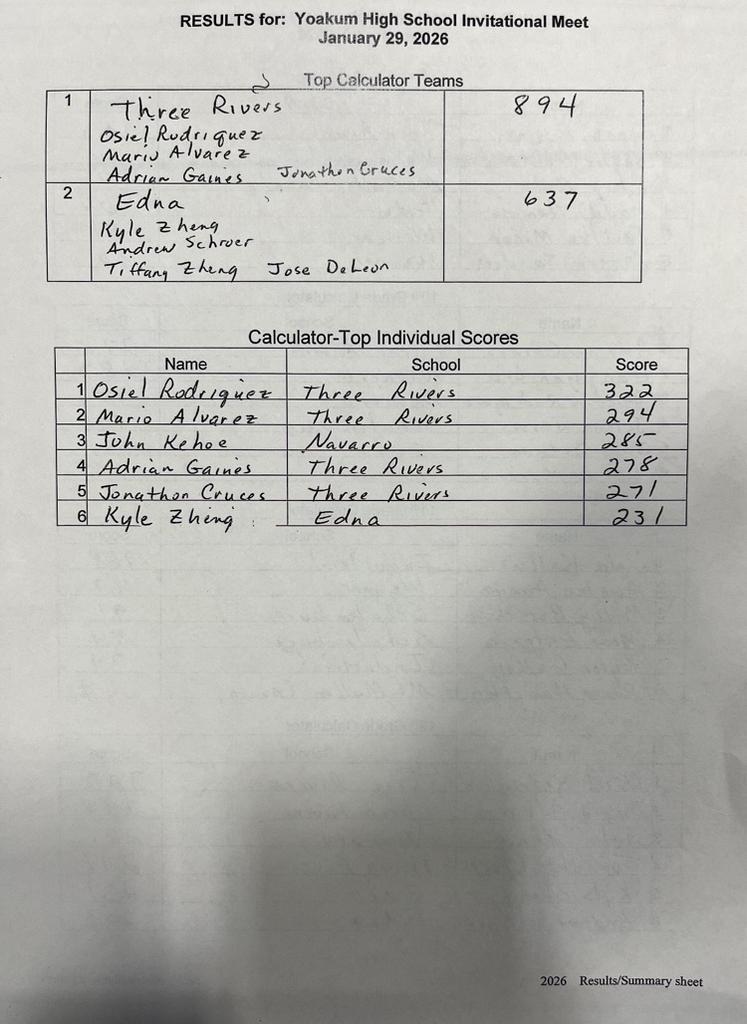 RESULTS for: Yoakum High School Invitational Meet
January 29, 2026
Top Calculator Teams
1 Three Rivers 894
Osiel Rodriquez
Mario Alvarez
Adrian Gaines Jonathon Cruces
2 Edna 637
Kyle Zheng
Andrew Schroer
Tiffany Zheng Jose DeLeon
Calculator-Top Individual Scores
Name School Score
1 Osiel Rodriquez Three Rivers 322
2 Mario Alvarez Three Rivers 294
3 John Kehoe Navarro 285
4 Adrian Gaines Three Rivers 278
5 Jonathon Cruces Three Rivers 271
6 Kyle Zheng Edna 231
2026 Results/Summary sheet